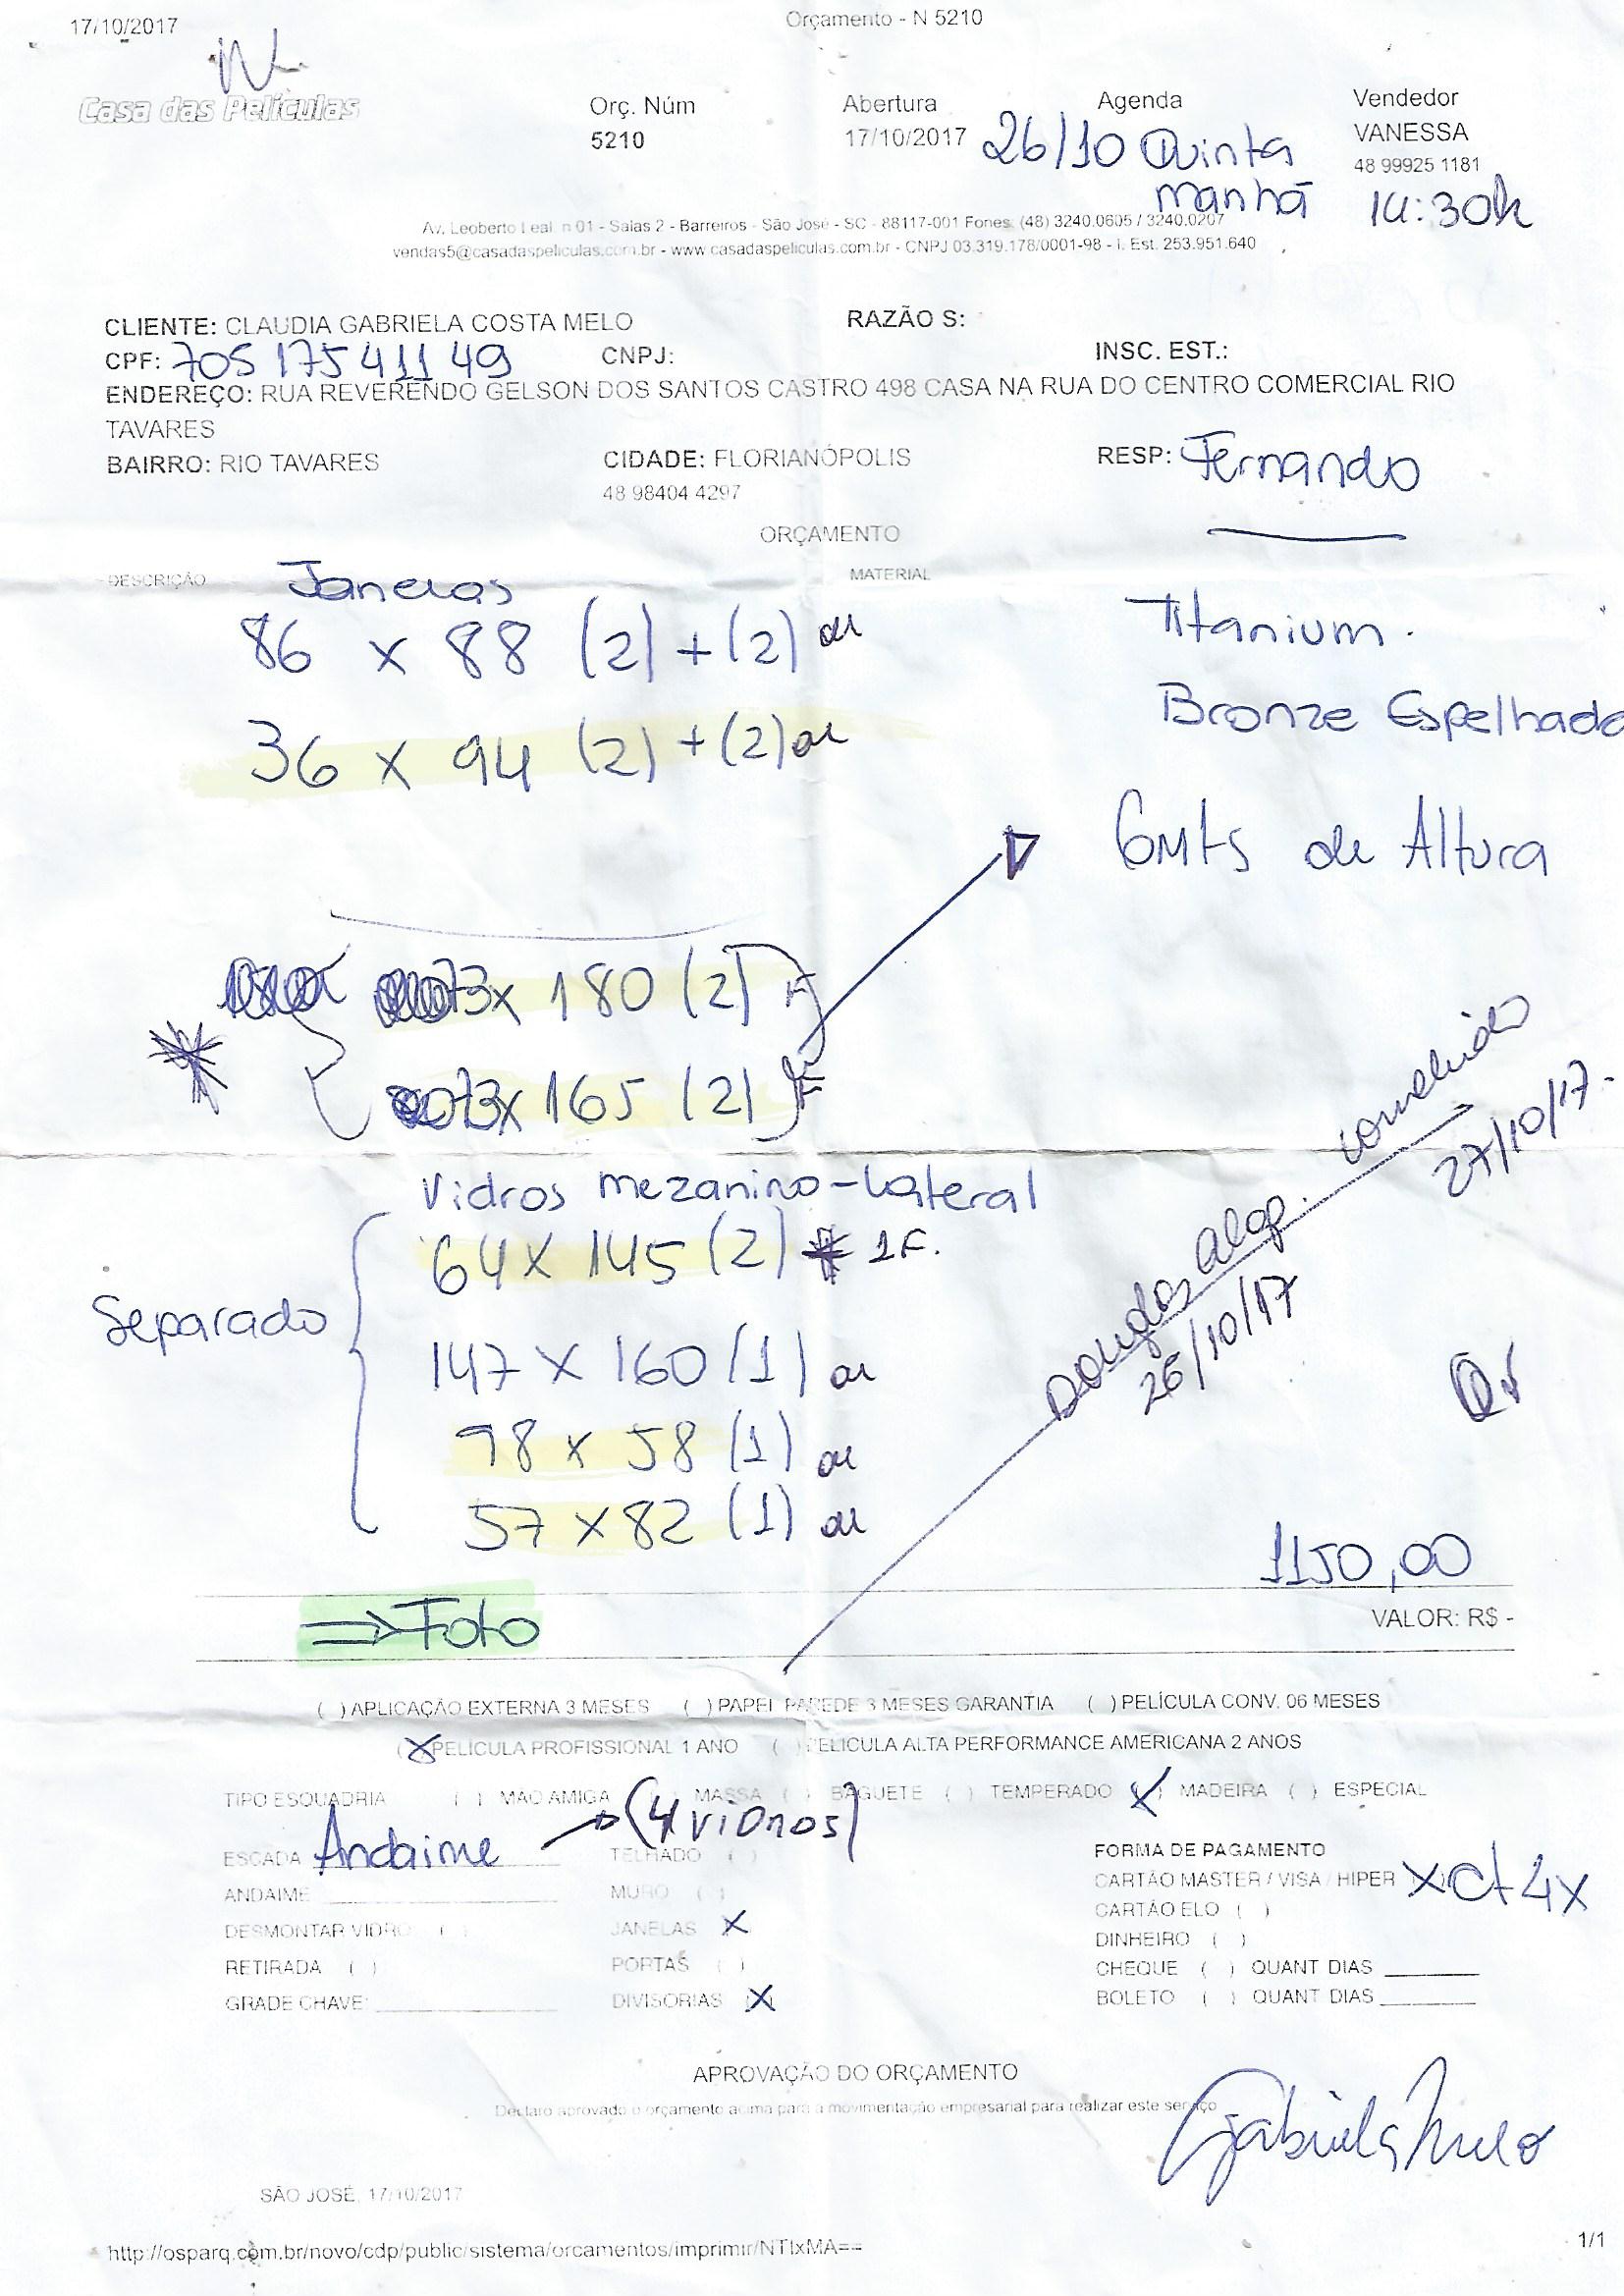 17/10/2017
Orçamento - N 5210
Casa das Películas
Orç. Núm
5210
Abertura
17/10/2017
Agenda
26/10 Quinta
manhã
Vendedor
VANESSA
48 99925 1181
14:30h
Av. Leoberto Leal, n 01 - Salas 2 - Barreiros - São José - SC - 88117-001 Fones: (48) 3240.0605 / 3240.0207
vendas5@casadaspeliculas.com.br - www.casadaspeliculas.com.br - CNPJ 03.319.178/0001-98 - I. Est. 253.951.640
CLIENTE: CLAUDIA GABRIELA COSTA MELO
RAZÃO S:
CPF: 705 175 411 49
CNPJ:
INSC. EST.:
ENDEREÇO: RUA REVERENDO GELSON DOS SANTOS CASTRO 498 CASA NA RUA DO CENTRO COMERCIAL RIO
TAVARES
BAIRRO: RIO TAVARES
CIDADE: FLORIANÓPOLIS
RESP: Fernando
48 98404 4297
ORÇAMENTO
DESCRIÇÃO
MATERIAL
Janelas
86 x 88 (2) + (2)
36 x 94 (2) + (2)
Titanium.
Bronze Espelhado
6Mts de Altura
73x 180 (2) F
73x 165 (2) F
Vidros mezanino-Lateral
Separado
64 x 145 (2) * 1F.
147 x 160 (1)
98 x 58 (1)
57 x 82 (1)
Douglas
26/10/17
concluido
27/10/17.
1150,00
VALOR: R$ -
⇒ Foto
( ) APLICAÇÃO EXTERNA 3 MESES ( ) PAPEL PAREDE 3 MESES GARANTIA ( ) PELÍCULA CONV. 06 MESES
(X) PELÍCULA PROFISSIONAL 1 ANO ( ) PELICULA ALTA PERFORMANCE AMERICANA 2 ANOS
TIPO ESQUADRIA ( ) MAO AMIGA ( ) MASSA ( ) BAGUETE ( ) TEMPERADO (X) MADEIRA ( ) ESPECIAL
ESCADA Andaime → (4 vidros)
TELHADO ( )
ANDAIME
MURO ( )
DESMONTAR VIDRO ( )
JANELAS X
RETIRADA ( )
PORTAS ( )
GRADE CHAVE:
DIVISORIAS (X)
FORMA DE PAGAMENTO
CARTÃO MASTER / VISA / HIPER X ct 4x
CARTÃO ELO ( )
DINHEIRO ( )
CHEQUE ( ) QUANT DIAS
BOLETO ( ) QUANT DIAS
APROVAÇÃO DO ORÇAMENTO
Declaro aprovado o orçamento acima para a movimentação empresarial para realizar este serviço
Gabriela Melo
SÃO JOSÉ, 17/10/2017
http://osparq.com.br/novo/cdp/public/sistema/orcamentos/imprimir/NTIxMA==
1/1